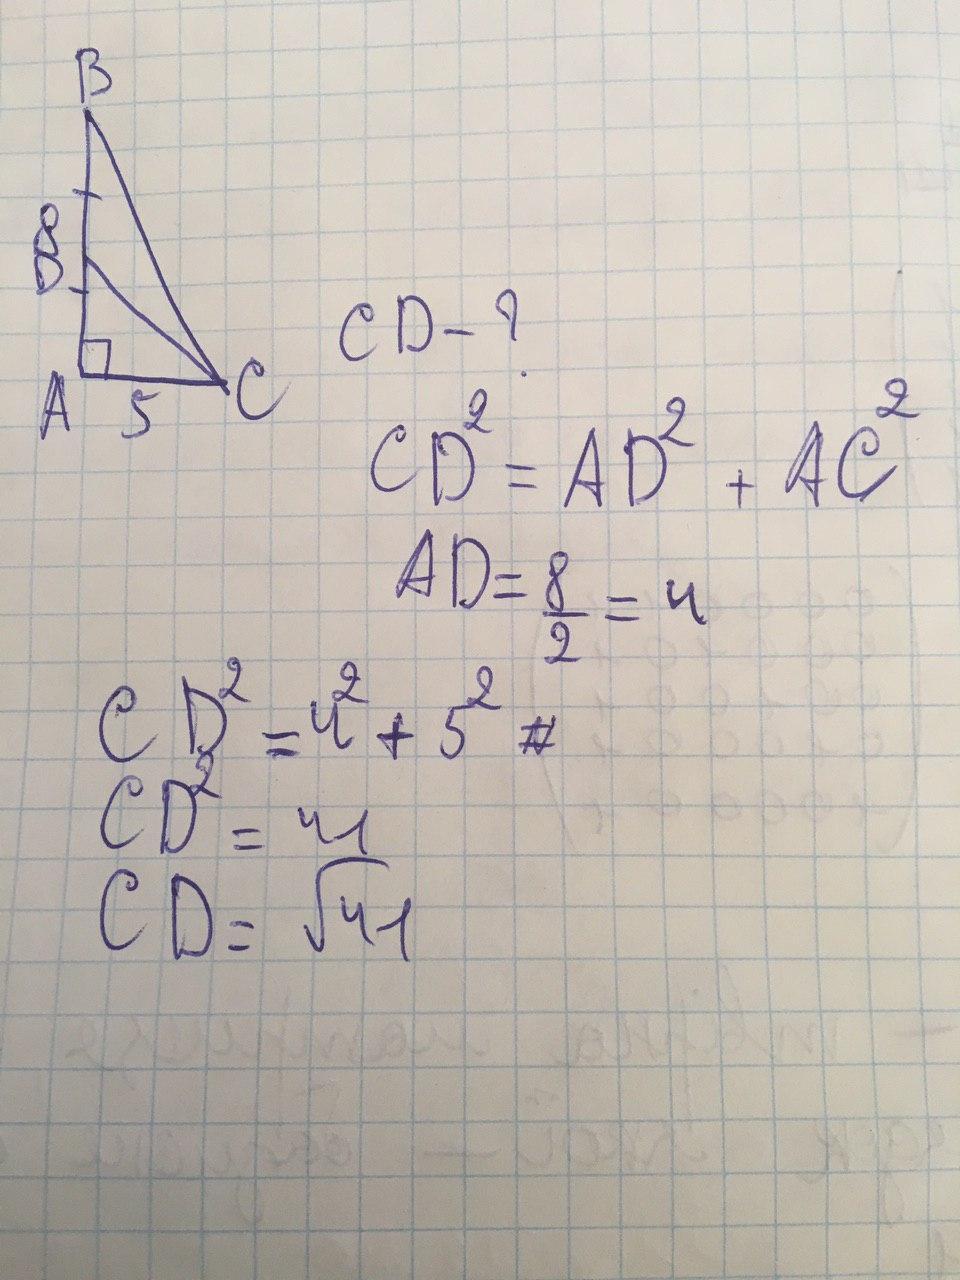 B
8
D
A 5 C
CD - ?
CD² = AD² + AC²
AD = 8/2 = 4
CD² = 4² + 5²
CD² = 41
CD = √41